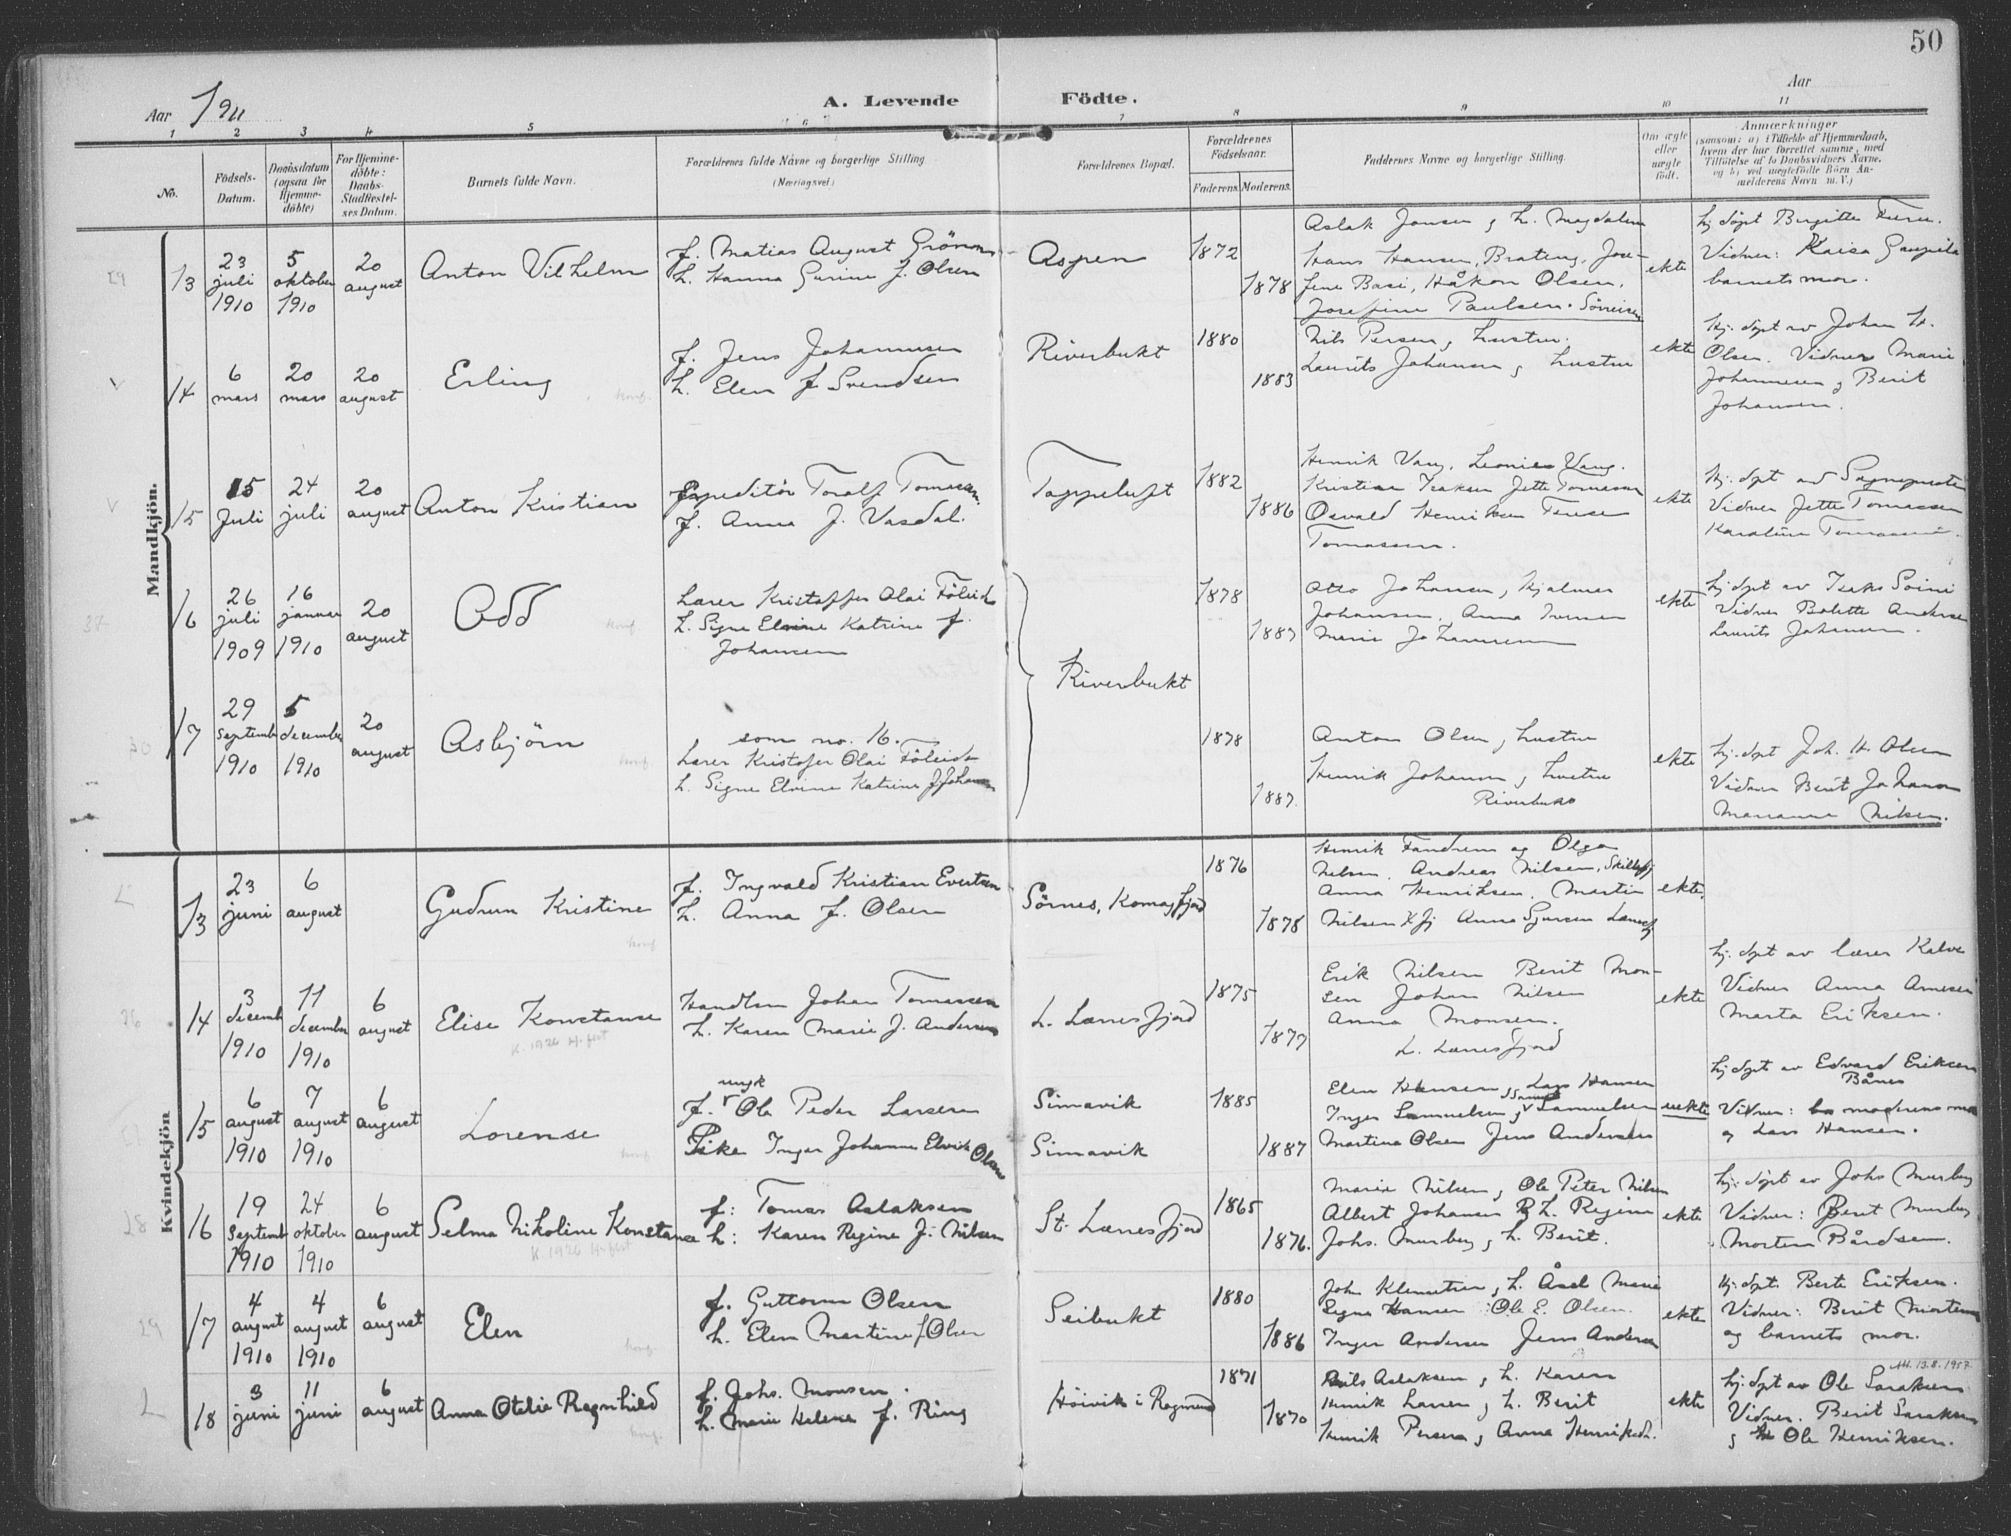 50
Aar 1911
A. Levende Födte.
Aar
1 2 3 4 5 6 7 8 9 10 11
No.
Födsels-Datum.
Daabsdatum (ogsaa for Hjemmedöbte)
For Hjemmedöbte: Daabs-Stadfæstelses Datum.
Barnets fulde Navn.
Forældrenes fulde Navne og borgerlige Stilling (Næringsvei.)
Forældrenes Bopæl.
Forældrenes Födselsaar.
Faderens. Moderens.
Faddernes Navne og borgerlige Stilling.
Om ægte eller uægte födt.
Anmærkninger
(saasom: a) i Tilfælde af Hjemmedaab, hvem der har forrettet samme, med Tilföielse af to Daabsvidners Navne, og b) ved uægtefödte Börn Anmelderens Navn m. V.)
Mandkjön.
13 23 juli 1910 5 oktober 1910 20 august Anton Vilhelm
f. Matias August
h. Hanna Gurine f. Olsen
Aspen 1872 1878
Aslak Jonsen, h. Magdalena
Hans Hansen, Brateng, Jose-
fine Basi, Håkon Olsen,
Josefine Paulsen
ekte
hj. döpt Birgitte
Vidner: Kaisa
barnets mor.
14 6 mars 20 mars 20 august Erling
f. Jens Johannesen
h. Elen f. Svendsen
Riverbukt 1880 1883
Nils Persen, hustru.
Laurits Johansen, hustru
ekte
Hj. döpt av Johan H.
Olsen. Vidner Marie
Johannesen, Berit
Johansen.
15 15 Juli 24 juli 20 august Anton Kristian
Expeditör Toralf Tomassen
f. Anna f. Vasdal.
Toppeluft 1882 1886
Henrik Vang, Leonie Vang.
Kristine Isaksen Jette Tomassen
Osvald Henriksen
Tomassen.
ekte
hj. döpt av Sogneprest
Vidner Jette Tomassen
Karoline Tomassen.
16 26 juli 1909 16 januar 1910 20 august Odd
Lærer Kristoffer Olai
h. Signe Elvine Katrine f.
Johansen
Riverbukt 1878 1887
Otto Johansen, Hjalmar
Johansen, Anna Iversen
Marie Johannesen
ekte
hj. döpt av Isak
Vidner Bolette Andersen
Laurits Johansen.
17 29 september 1910 5 december 1910 20 august Asbjörn
som no. 16.
Lærer Kristofer Olai
h. Signe Elvine Katrine f. Johansen
1878 1887.
Anton Olsen, hustru
Henrik Johansen, hustru
Riverbukt
ekte
hj. döpt Joh. H. Olsen
Vidner Berit Johansen
Marianne Nilsen.
Kvindekjön
13 23 juni 6 august Gudrun Kristine
f. Ingvald Kristian Evertsen
h. Anna f. Olsen
Sörnes, Komagfjord 1876 1878
Henrik Fandrem og Olga
Nilsen, Andreas Nilsen,
Anna Henriksen, Martin
Nilsen
ekte.
14 3 decemb 1910 11 december 1910 6 august Elise Konstanse
K. 1926
Handlsm Johan Tomassen
h. Karen Marie f. Andersen
L. Lærresfjord 1875 1877
Erik Nilsen Berit Mon-
sen Johan Nilsen
Anna Monsen.
L. Lærresfjord
ekte
hj. döpt av lærer Kalve
Vidner Anna Arnesen
Marta Eriksen.
15 6 august 1910 7 august 1910 6 august Lorense
f. ungk Ole Peder Larsen
Pike Inger Johanne Elvik Olsen
Simavik
Simavik
1885 1887
Elen Hansen, Lars Hansen
Inger Samuelsen, Samuelsen
Martina Olsen Jens Andersen
uekte
hj. döpt av Edvard Eriksen
Bånes
Vidner: moderens mor
og Lars Hansen.
16 19 Septemb 1910 24 oktober 1910 6 august Selma Nikoline Konstanse
K. 1926
f: Tomas Aslaksen
h: Karen Regine f. Nilsen
St. Lærresfjord 1865 1876.
Marie Nilsen, Ole Peter Nilsen
Albert Johansen h. Regine
Johs. Murberg, h. Berit.
ekte
hj: döpt av Johs Murberg
Vidner: Berit Murberg
Morten Bårdsen.
17 4 august 1910 4 august 1910 6 august Elen
f. Guttorm Olsen
h. Elen Martine f. Olsen
Seibukt 1880 1886
John Klemetsen, h. Åsel Marie
Signe Hansen Ole E. Olsen.
Inger Andersen Jens Andersen
ekte
Hj. döpt. Berte Eriksen.
Vidner: Berit Mortensen
og barnets mor.
18 3 juni 11 juni 6 august Anna Otelie Ragnhild
f. Johs. Monsen.
h. Marie Helene f. Ring
Höivik i Rognsund 1871 1870
Nils Aslaksen, h. Karen
Henrik Larsen, h. Berit
Henrik Persen, Anna Henriksdr.
ekte
13.8.1957
hj. döpt av Ole Saraksen
Vidner. Berit Saraksen
Ole Henriksen.